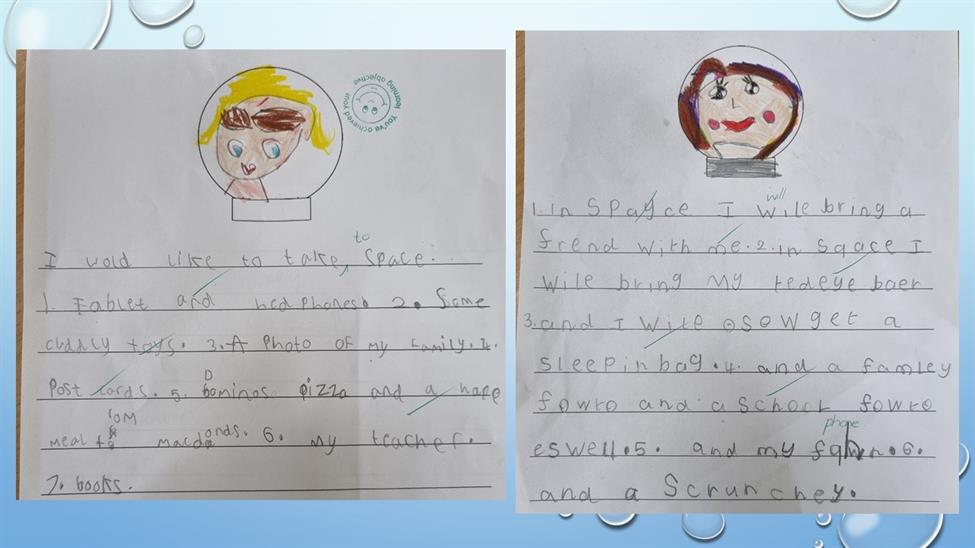 You've achieved your
learning objective
to
I wold like to take, space.
1. Tablet and hedphones. 2. Some
cuddly toys. 3. A Photo of my family. 4.
Post cards. 5. Dominos pizza and a hape
meal from macdonds. 6. my teacher.
7. books.
will
1. in spayce I wile bring a
frend with me. 2. in sqace I
wile bring my tedeye baer
3. and I wile osow get a
sleepinbag. 4. and a famley
fowto and a school fowto
eswell. 5. and my 6.
phone
and a Scrunchey.